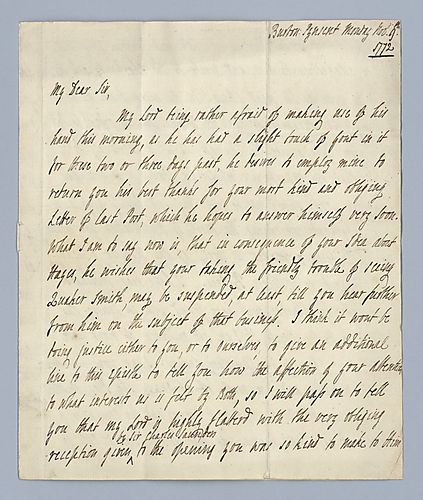 Burton Pynsent Monday Nov. 9th
1772
My Dear Sir,
My Lord being rather afraid of making use of his
hand this morning, as he has had a slight touch of Gout in it
for these two or three days past, he desires to employ mine to
return you his best thanks for your most kind and obliging
Letter by last Post, which he hopes to answer himself very soon.
What I am to say now is, that in consequence of your Idea about
Hayes, he wishes that your taking the friendly trouble of seeing
Quaker Smith, may be suspended, at least, till you hear further
from him on the subject of that business. I think it wont be
doing justice either to you, or to ourselves, to give an additional
line to this epistle to tell you how the affection of your attention
to what interests us is felt by Both, so I will pass on to tell
you that my Lord is highly flatterd with the very obliging
by Sir Charles Saunders
reception given to the opening you was so kind to make to Him